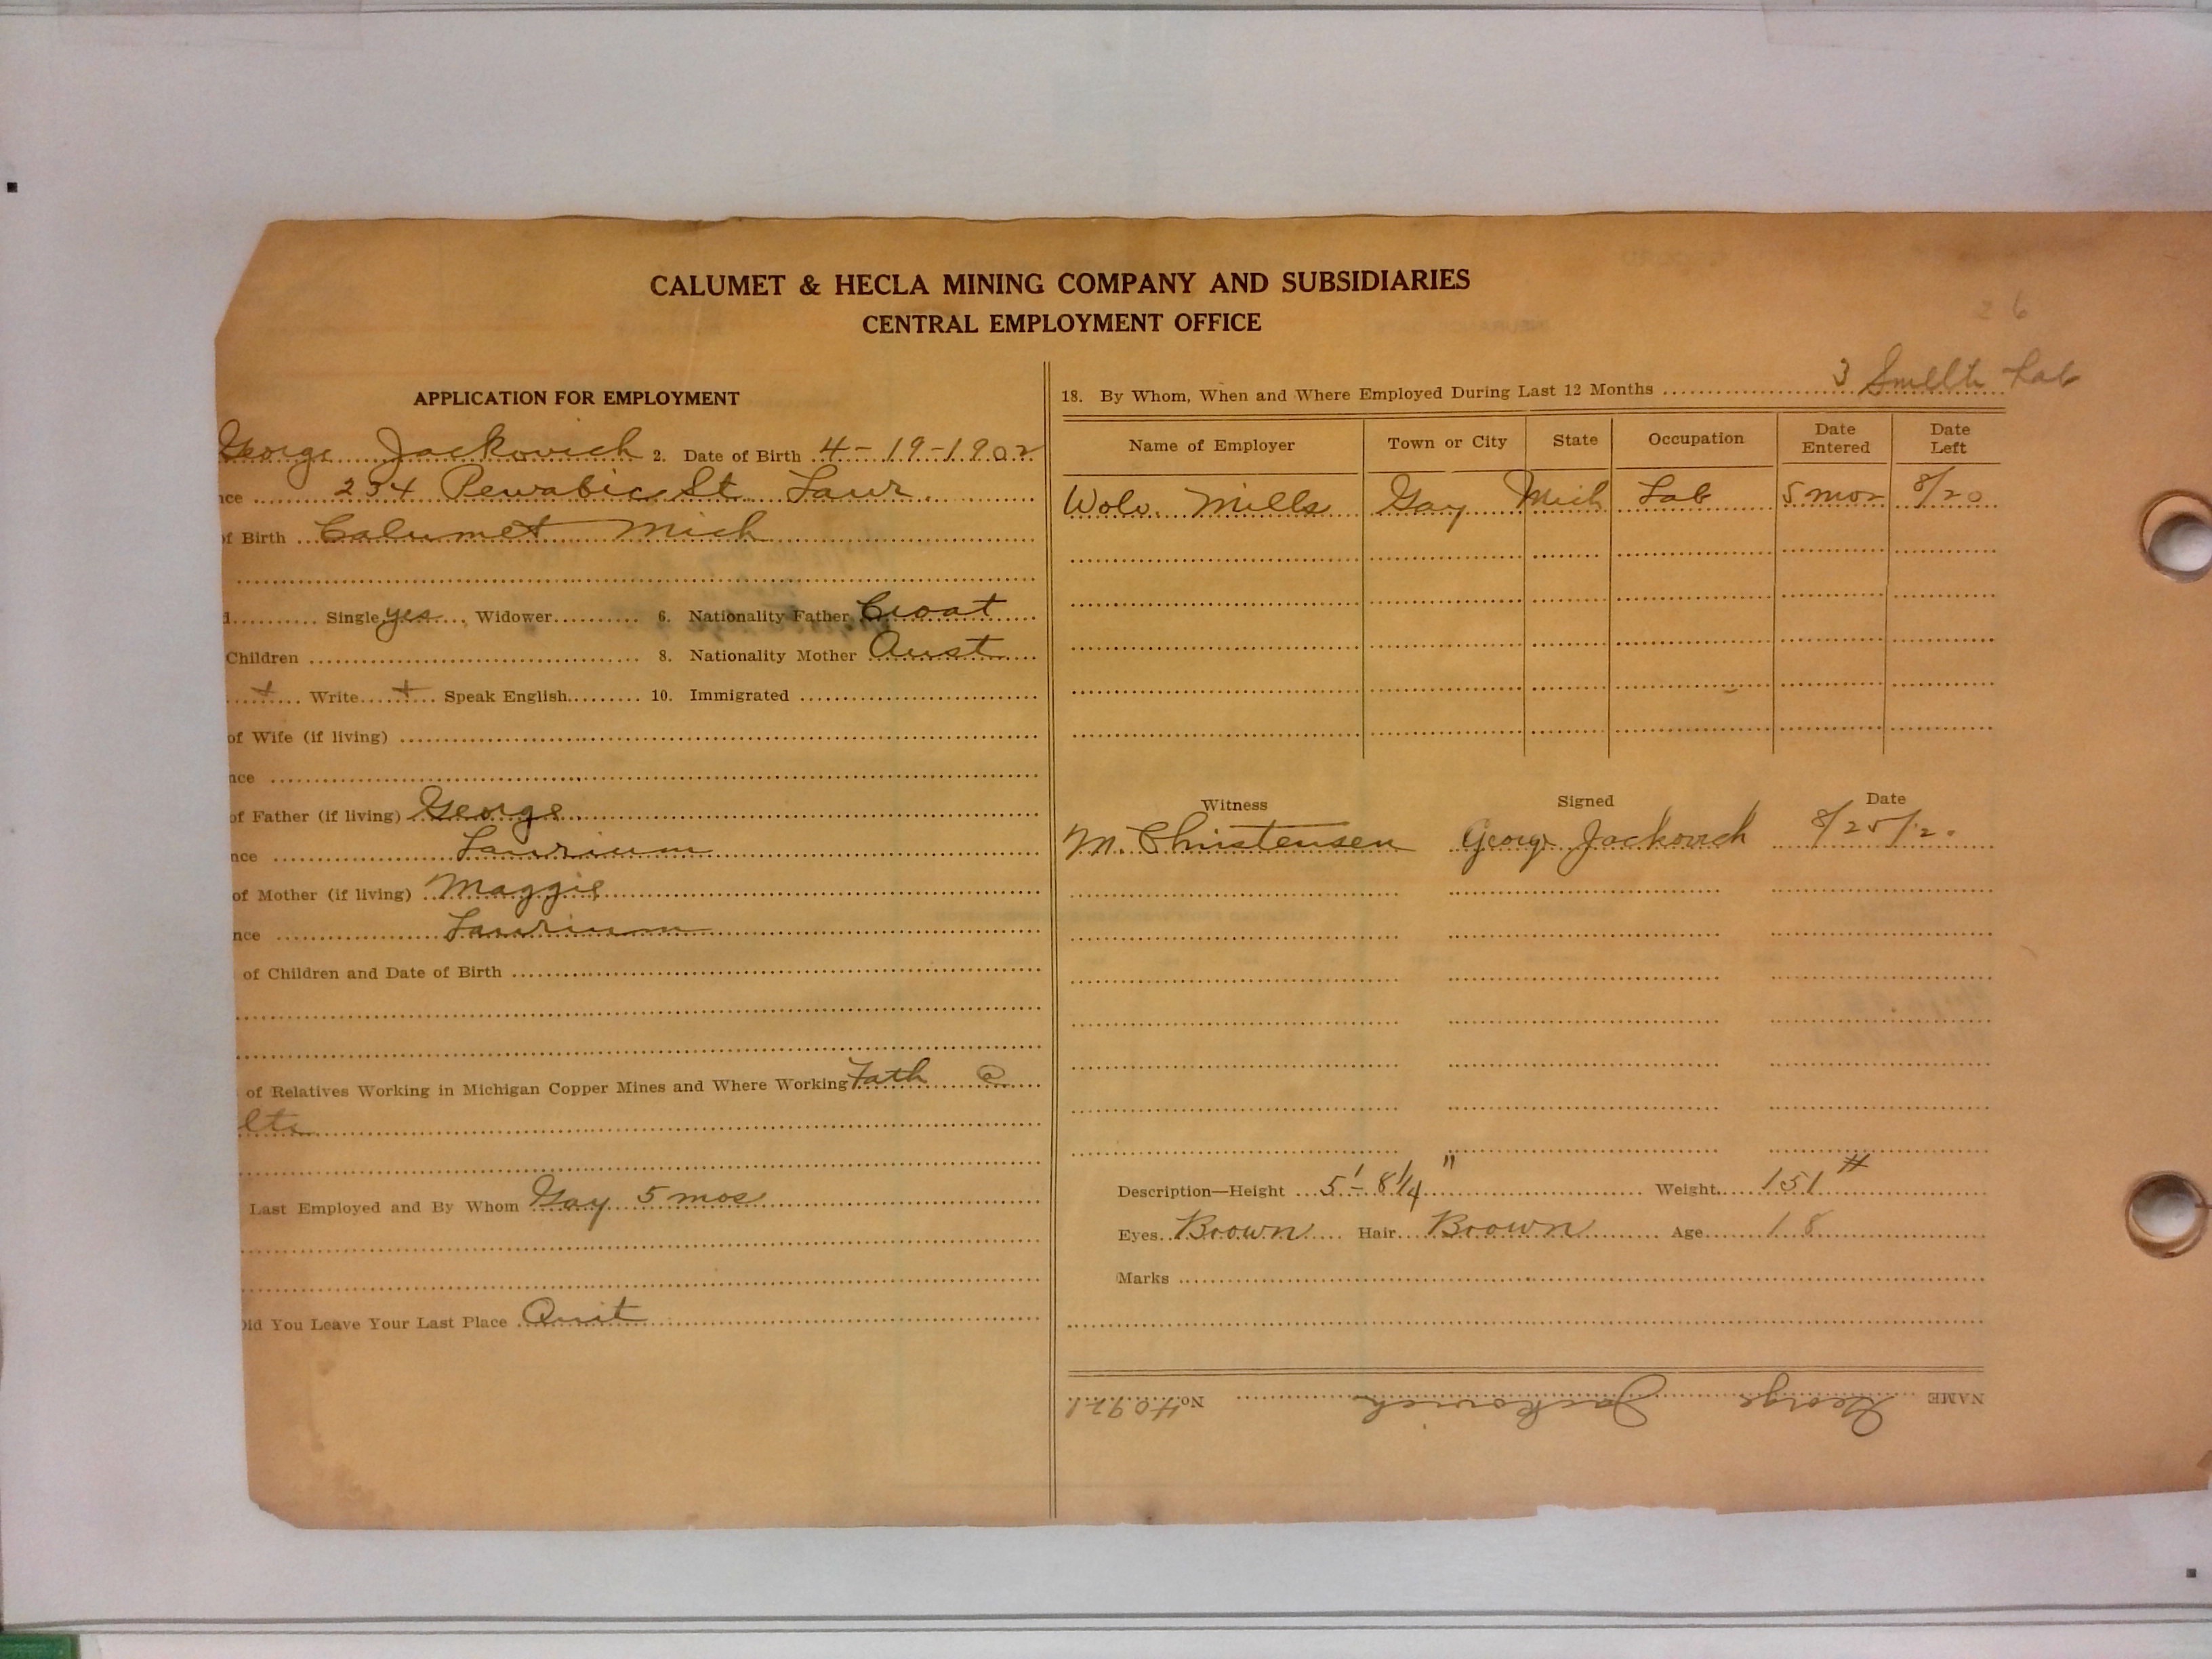 CALUMET & HECLA MINING COMPANY AND SUBSIDIARIES
CENTRAL EMPLOYMENT OFFICE
26
APPLICATION FOR EMPLOYMENT
George Jackovich 2. Date of Birth 4-19-1902
nce 234 Pewabic St. Laur.
of Birth Calumet Mich
d Single yes Widower 6. Nationality Father Croat
Children 8. Nationality Mother Aust
+ Write + Speak English 10. Immigrated
of Wife (if living)
nce
of Father (if living) George
nce Laurium
of Mother (if living) Maggie
nce Laurium
of Children and Date of Birth
of Relatives Working in Michigan Copper Mines and Where Working Fath @
lts
Last Employed and By Whom Gay 5 mos
Did You Leave Your Last Place Quit
18. By Whom, When and Where Employed During Last 12 Months 3 Smelts Lab
Name of Employer Town or City State Occupation Date Entered Date Left
Wolv. Mills Gay Mich Lab 5 mos 8/20
Witness Signed Date
M. Christensen George Jackovich 8/25/20
Description—Height 5'-8 1/4" Weight 151 #
Eyes Brown Hair Brown Age 18
Marks
NAME George Jackovich No. 40921